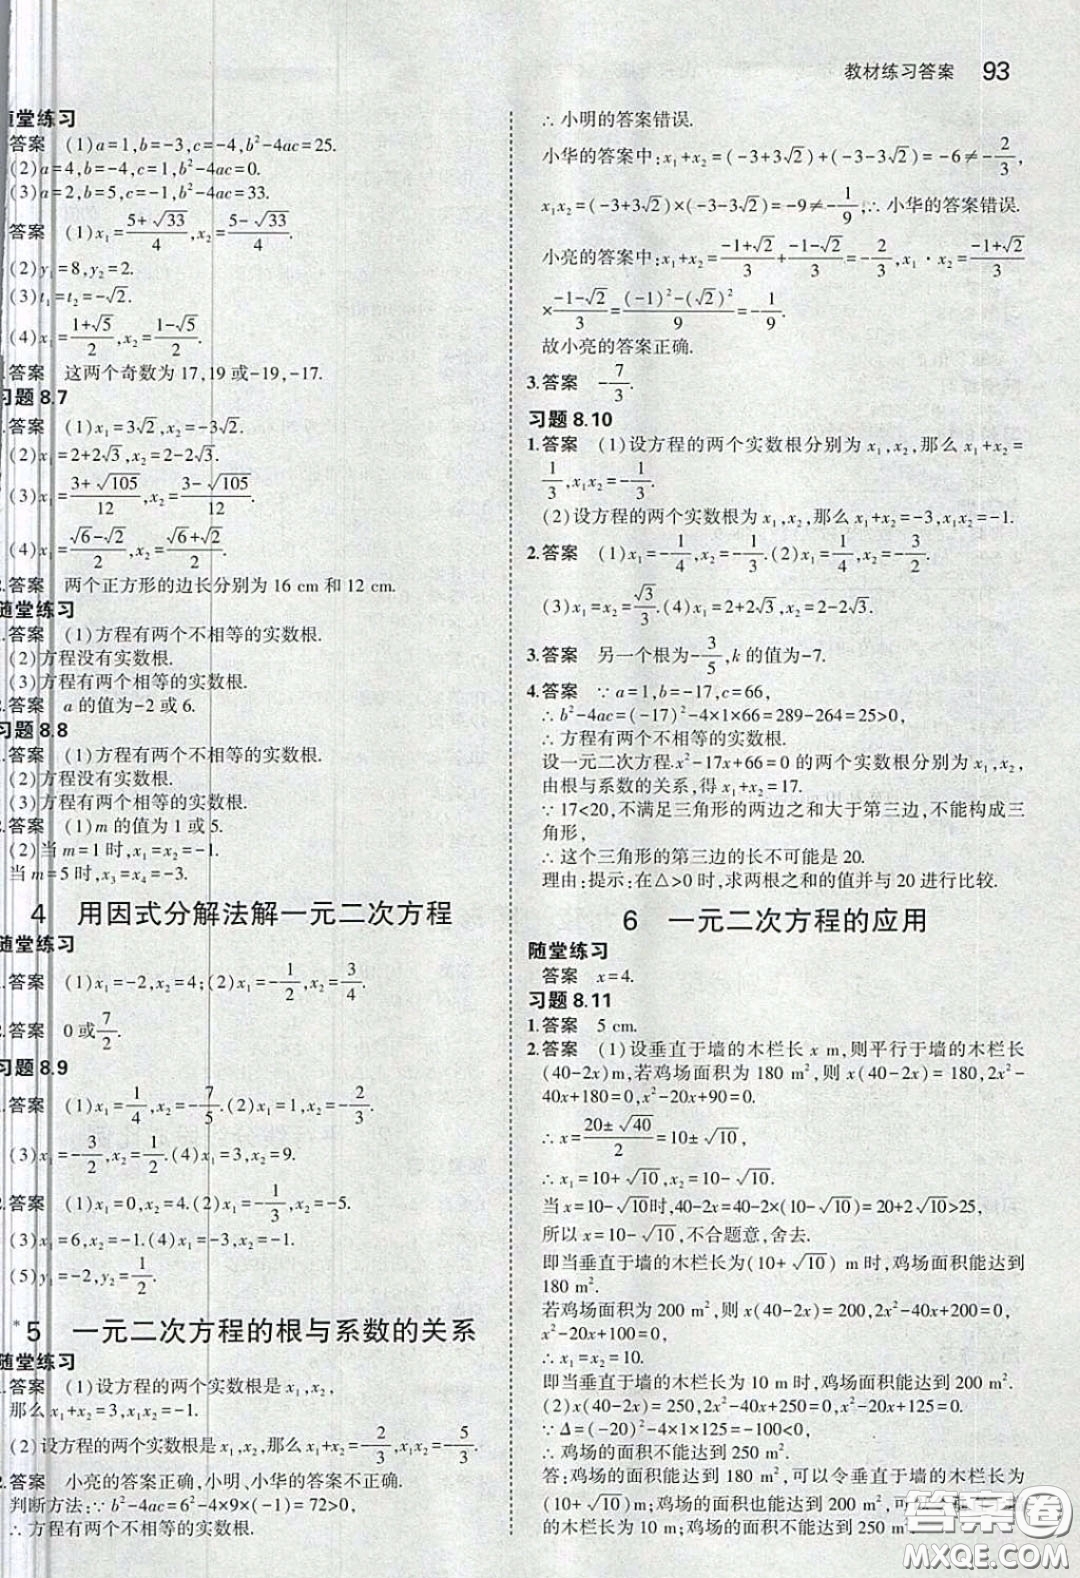 教材练习答案 93
随堂练习
答案 (1)a=1,b=-3,c=-4,b²-4ac=25.
(2)a=4,b=-4,c=1,b²-4ac=0.
(3)a=2,b=5,c=-1,b²-4ac=33.
答案 (1)x₁=(5+√33)/4,x₂=(5-√33)/4.
(2)y₁=8,y₂=2.
(3)t₁=t₂=-√2.
(4)x₁=(1+√5)/2,x₂=(1-√5)/2.
答案 这两个奇数为17,19或-19,-17.
习题8.7
答案 (1)x₁=3√2,x₂=-3√2.
(2)x₁=2+2√3,x₂=2-2√3.
(3)x₁=(3+√105)/12,x₂=(3-√105)/12.
(4)x₁=(√6-√2)/2,x₂=(√6+√2)/2.
2.答案 两个正方形的边长分别为16 cm和12 cm.
随堂练习
1.答案 (1)方程有两个不相等的实数根.
(2)方程没有实数根.
(3)方程有两个相等的实数根.
2.答案 a的值为-2或6.
习题8.8
1.答案 (1)方程有两个不相等的实数根.
(2)方程没有实数根.
(3)方程有两个相等的实数根.
2.答案 (1)m的值为1或5.
(2)当m=1时,x₁=x₂=-1.
当m=5时,x₃=x₄=-3.
4 用因式分解法解一元二次方程
随堂练习
1.答案 (1)x₁=-2,x₂=4;(2)x₁=-1/2,x₂=3/4.
2.答案 0或7/2.
习题8.9
1.答案 (1)x₁=1/4,x₂=-7/5.(2)x₁=1,x₂=-2/3.
(3)x₁=-3/2,x₂=2.(4)x₁=3,x₂=9.
2.答案 (1)x₁=0,x₂=4.(2)x₁=-1/3,x₂=-5.
(3)x₁=6,x₂=-1.(4)x₁=-3,x₂=-1.
(5)y₁=-2,y₂=1/2.
*5 一元二次方程的根与系数的关系
随堂练习
1.答案 (1)设方程的两个实数根是x₁,x₂,
那么x₁+x₂=3,x₁x₂=-1.
(2)设方程的两个实数根是x₁,x₂,那么x₁+x₂=-2/3,x₁x₂=-5/3.
2.答案 小亮的答案正确,小明、小华的答案不正确.
判断方法:∵b²-4ac=6²-4×9×(-1)=72>0,
∴方程有两个不相等的实数根.
∴小明的答案错误.
小华的答案中:x₁+x₂=(-3+3√2)+(-3-3√2)=-6≠-2/3,
x₁x₂=(-3+3√2)×(-3-3√2)=-9≠-1/9,∴小华的答案错误.
小亮的答案中:x₁+x₂=(-1+√2)/3+(-1-√2)/3=-2/3,x₁·x₂=(-1+√2)/3
×(-1-√2)/3=((-1)²-(√2)²)/9=-1/9.
故小亮的答案正确.
3.答案 -7/3.
习题8.10
1.答案 (1)设方程的两个实数根分别为x₁,x₂,那么x₁+x₂=
1/3,x₁x₂=-1/3.
(2)设方程的两个实数根为x₁,x₂,那么x₁+x₂=-3,x₁x₂=-1.
2.答案 (1)x₁=-1/4,x₂=-1/3.(2)x₁=1/4,x₂=-3/2.
(3)x₁=x₂=√3/3.(4)x₁=2+2√3,x₂=2-2√3.
3.答案 另一个根为-3/5,k的值为-7.
4.答案 ∵a=1,b=-17,c=66,
∴b²-4ac=(-17)²-4×1×66=289-264=25>0,
∴方程有两个不相等的实数根.
设一元二次方程x²-17x+66=0的两个实数根分别为x₁,x₂,
由根与系数的关系,得x₁+x₂=17.
∵17<20,不满足三角形的两边之和大于第三边,不能构成三
角形,
∴这个三角形的第三边的长不可能是20.
理由:提示:在△>0时,求两根之和的值并与20进行比较.
6 一元二次方程的应用
随堂练习
答案 x=4.
习题8.11
1.答案 5 cm.
2.答案 (1)设垂直于墙的木栏长x m,则平行于墙的木栏长
(40-2x)m,若鸡场面积为180 m²,则x(40-2x)=180,2x²-
40x+180=0,x²-20x+90=0.
∴x=(20±√40)/2=10±√10,
∴x₁=10+√10,x₂=10-√10.
当x=10-√10时,40-2x=40-2×(10-√10)=20+2√10>25,
所以x=10-√10,不合题意,舍去.
即当垂直于墙的木栏长为(10+√10) m时,鸡场面积能达到
180 m².
若鸡场面积为200 m²,则x(40-2x)=200,2x²-40x+200=0,
x²-20x+100=0.
∴x₁=x₂=10.
即当垂直于墙的木栏长为10 m时,鸡场面积能达到200 m².
(2)x(40-2x)=250,2x²-40x+250=0,x²-20x+125=0.
∵Δ=(-20)²-4×1×125=-100<0,
∴鸡场的面积不能达到250 m².
答:鸡场的面积能达到180 m²,可以令垂直于墙的木栏长为
(10+√10) m;鸡场的面积也能达到200 m²,可
的木栏长为10 m;鸡场的面积不能达到250 m².
答案圈
MXQE.COM